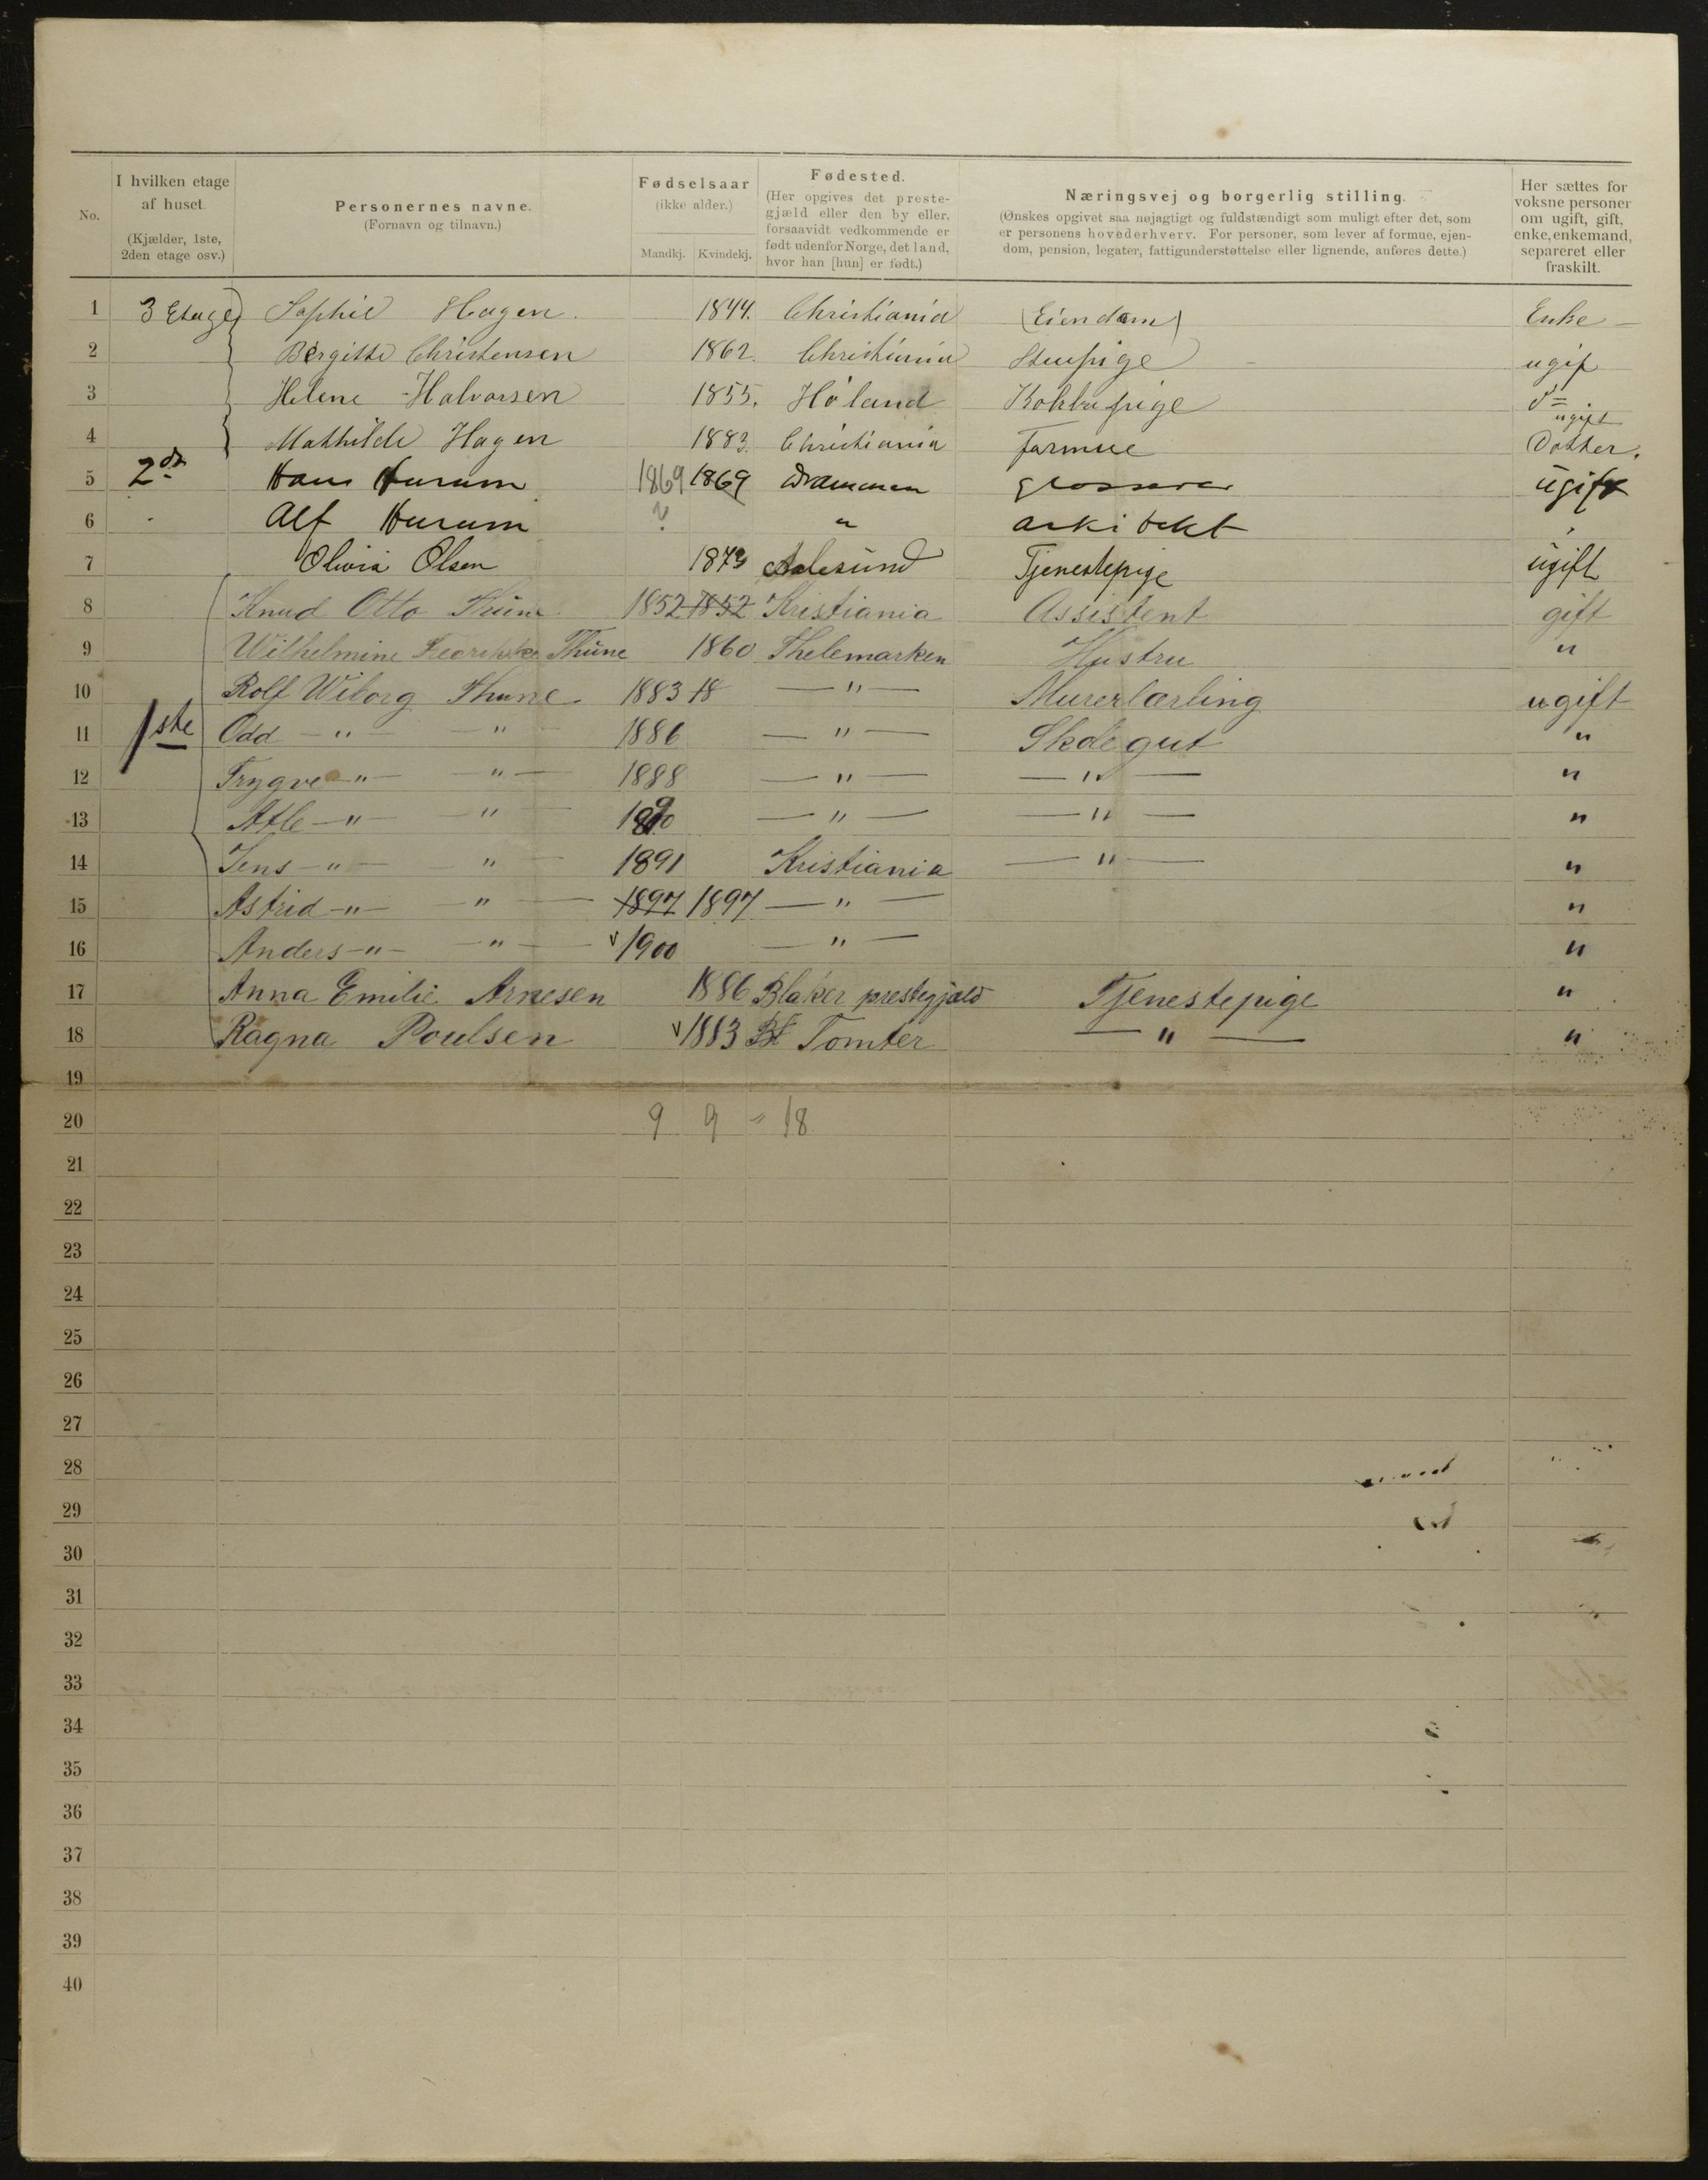 No. I hvilken etage af huset. (Kjælder, 1ste, 2den etage osv.) Personernes navne. (Fornavn og tilnavn.) Fødselsaar (ikke alder.) Mandkj. Kvindekj. Fødested. (Her opgives det prestegjæld eller den by eller, forsaavidt vedkommende er født udenfor Norge, det land, hvor han [hun] er født.) Næringsvej og borgerlig stilling. (Ønskes opgivet saa nøjagtigt og fuldstændigt som muligt efter det, som er personens hovederhverv. For personer, som lever af formue, ejendom, pension, legater, fattigunderstøttelse eller lignende, anføres dette.) Her sættes for voksne personer om ugift, gift, enke, enkemand, separeret eller fraskilt.
1 3 Etage Sophie Hagen. 1844. Christiania (Eiendom) Enke —
2 Bergitte Christensen 1862. Christiania Stuepige ugif
3 Helene Halvorsen 1855. Høland Kokkepige d=
4 Mathilde Hagen 1883. Christiania Formue ugift Datter.
5 2den Hans Hurum 1869 1869 Drammen grosserer ugift
6 Alf Hurum ? " arkitekt "
7 Olivia Olsen 1873 Aalesund Tjenestepige ugift
8 Knud Otto Thüne 1852 1852 Kristiania Assistent gift
9 Wilhelmine Fredrikke Thüne 1860 Thelemarken Hustru "
10 Rolf Wiborg Thune. 1883 18 — " — Murerlærling ugift
11 1ste Odd — " — — " — 1886 — " — Skolegut "
12 Trygve — " — — " — 1888 — " — — " — "
13 Atle — " — — " — 1890 — " — — " — "
14 Jens — " — — " — 1891 Kristiania — " — "
15 Astrid — " — — " — 1897 1897 — " — "
16 Anders — " — — " — v 1900 — " — "
17 Anna Emilie Arnesen 1886 Blaker prestegjæld Tjenestepige "
18 Ragna Poulsen v 1883 Tomter — " — "
19
20 9 9 = 18
21
22
23
24
25
26
27
28
29
30
31
32
33
34
35
36
37
38
39
40